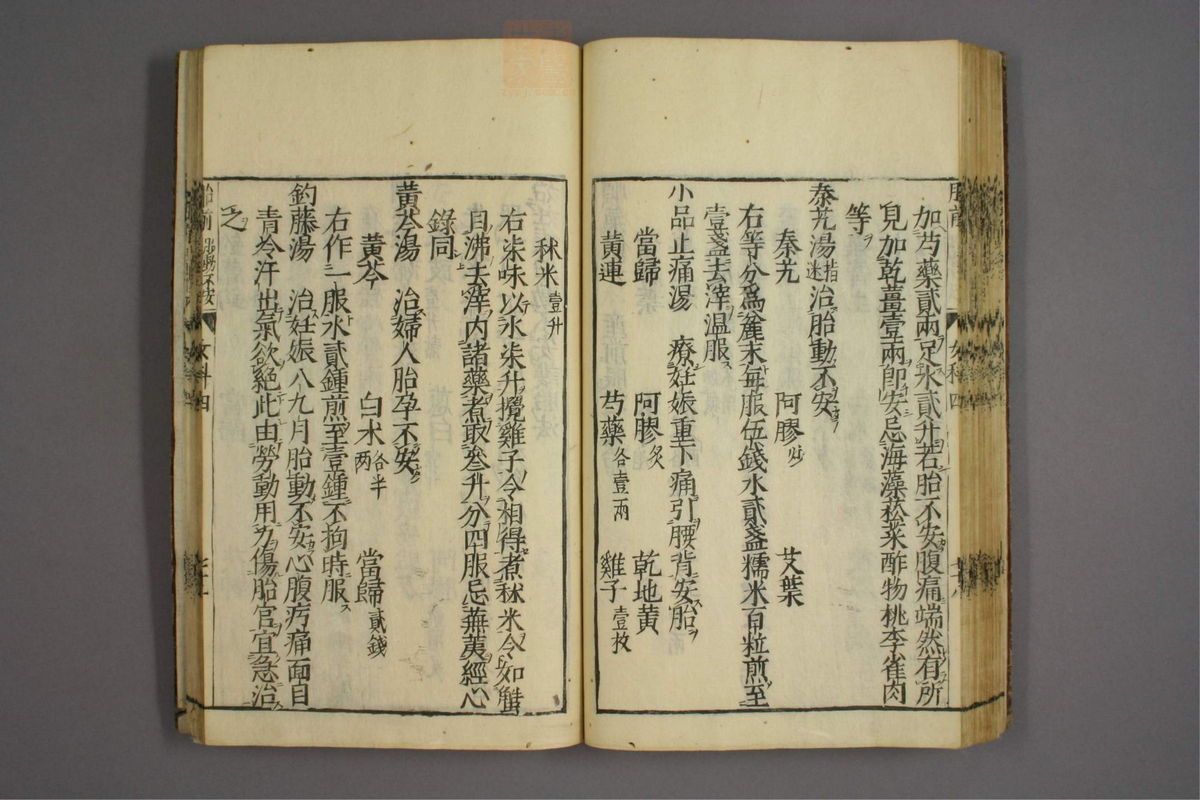 加芍藥貳兩足水貳升若胎不安腹痛端然有所
見加乾薑壹兩即安忌海藻菘菜酢物桃李雀肉
等
秦艽湯指迷治胎動不安
秦艽 阿膠炒 艾葉
右等分爲麄末每服伍錢水貳盞糯米百粒煎至
壹盞去滓温服
小品止痛湯 療妊娠重下痛引腰背安胎
當歸 阿膠炙 乾地黄
黄連 芍藥各壹兩 雞子壹枚
秫米壹升
右柒味以水柒升攪雞子令相得煮秫米令如蟹
目沸去滓内諸藥煮取叁升分四服忌蕪荑經心
錄同
黄芩湯 治婦人胎孕不安
黄芩 白术各半兩 當歸貳錢
右作一服水貳鍾煎至壹鍾不拘時服
釣藤湯 治妊娠八九月胎動不安心腹㽲痛面目
青冷汗出氣欲絕此由勞動用力傷胎宮宜急治
之